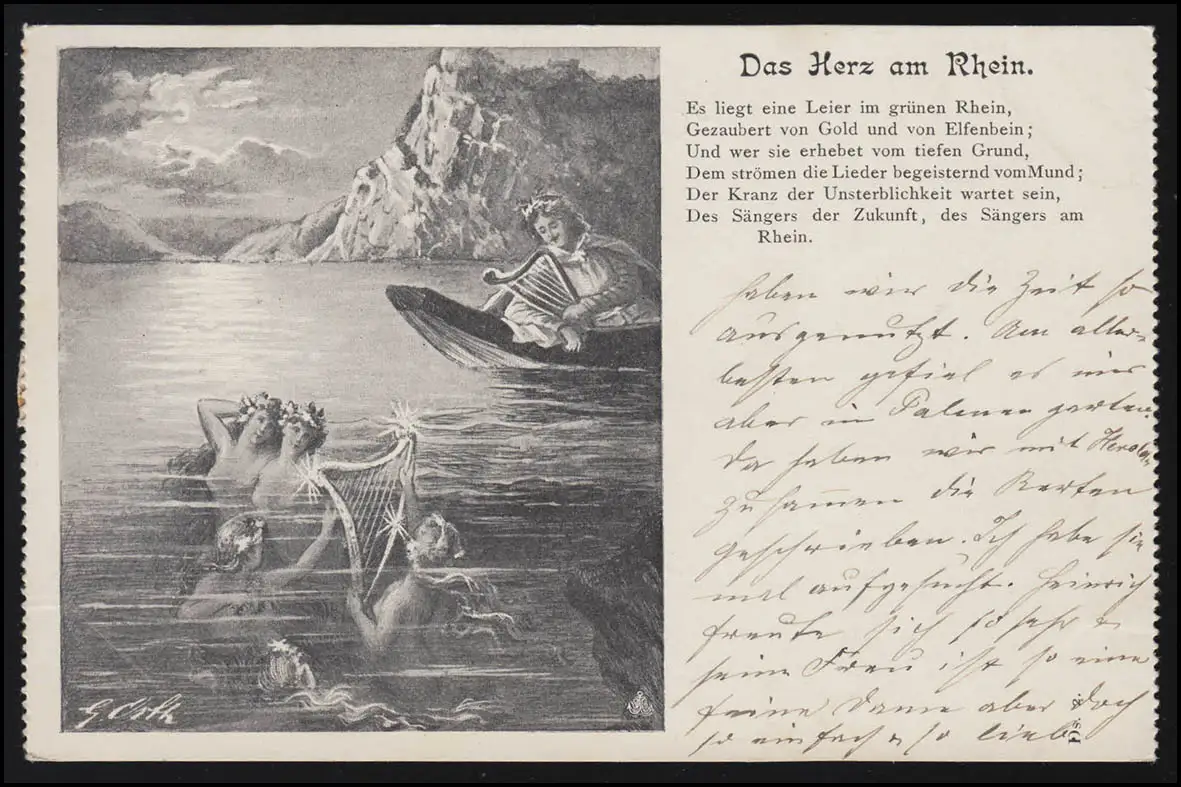 Das Herz am Rhein.
Es liegt eine Leier im grünen Rhein,
Gezaubert von Gold und von Elfenbein;
Und wer sie erhebet vom tiefen Grund,
Dem strömen die Lieder begeisternd vom Mund;
Der Kranz der Unsterblichkeit wartet sein,
Des Sängers der Zukunft, des Sängers am
Rhein.
haben wir die Zeit so
ausgenutzt. Am aller-
besten gefiel es mir
aber im Palmengarten
Da haben wir mit
zusammen die Karten
geschrieben. Ich habe sie
mal aufgesucht. Heinrich
freute sich so sehr
seine Frau ist so eine
feine Dame aber doch
so einfach & so lieb